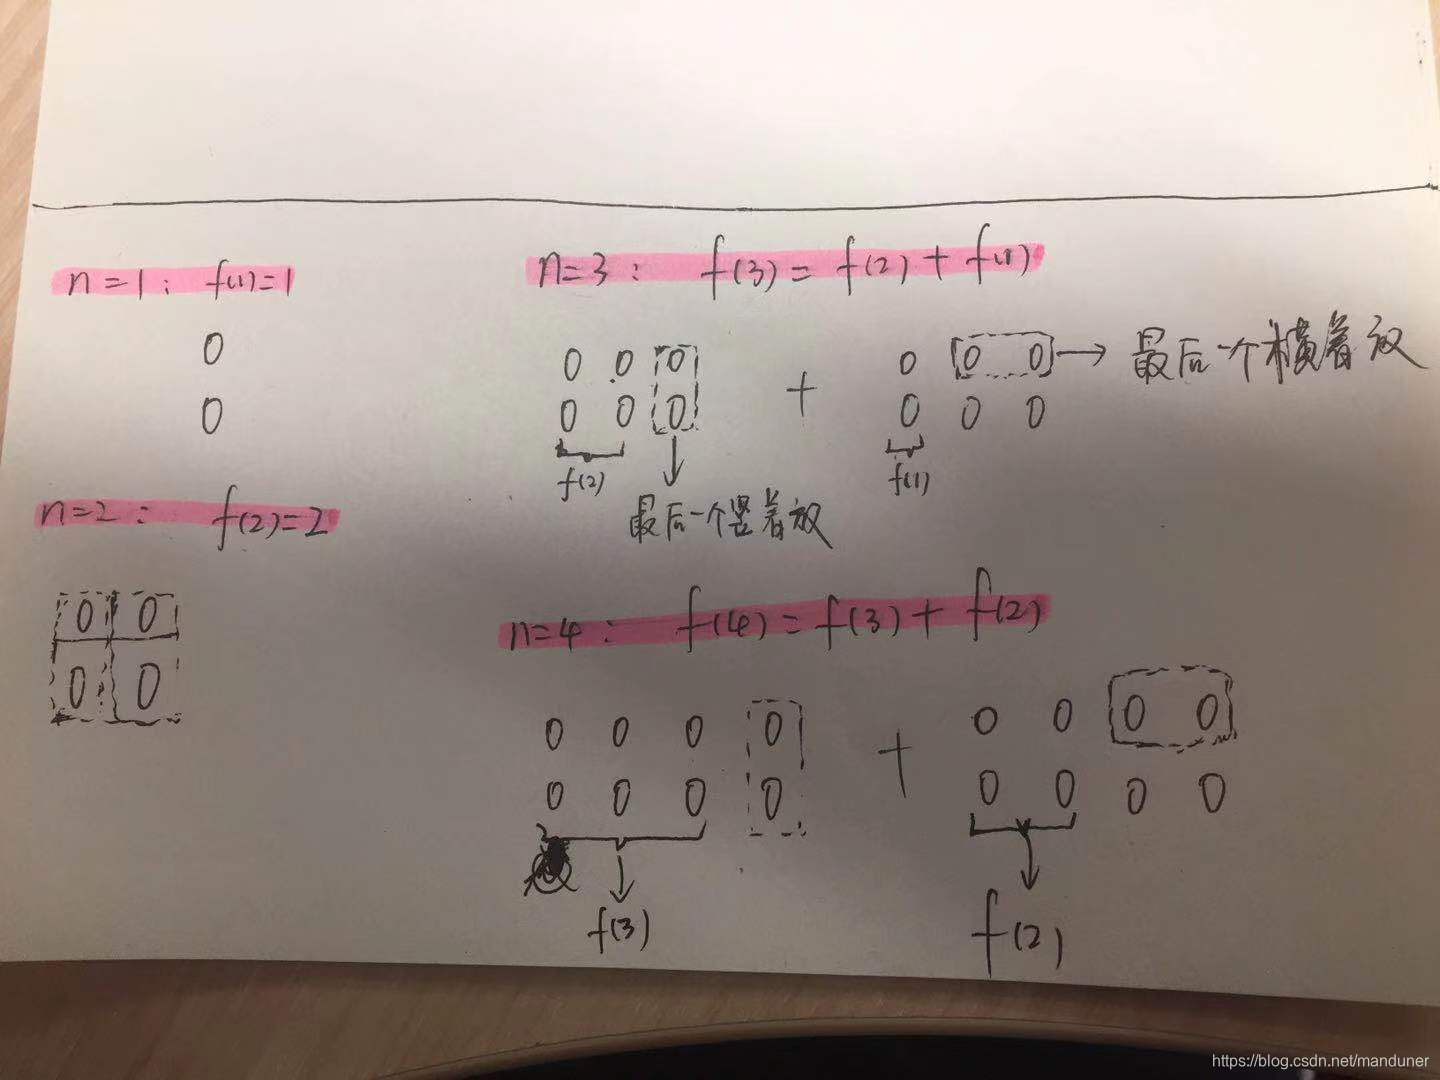 n=1: f(1)=1
0
0
n=2: f(2)=2
0 0
0 0
n=3: f(3)=f(2)+f(1)
0 0 0 + 0 0 0 → 最后一个横着放
0 0 0 0 0 0
f(2) f(1)
最后一个竖着放
n=4: f(4)=f(3)+f(2)
0 0 0 0 + 0 0 0 0
0 0 0 0 0 0 0 0
f(3) f(2)
https://blog.csdn.net/manduner